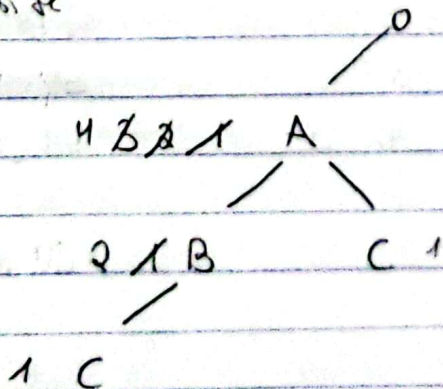 O
4 3 2 1 A
2 1 B C 1
1 C